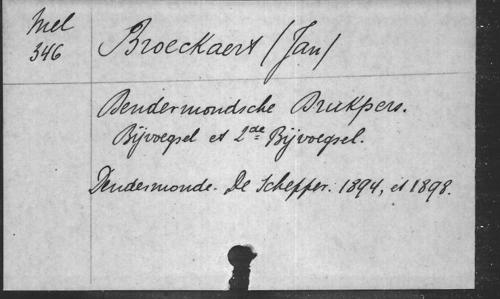 Mel
346
Broeckaert (Jan)
Dendermondsche Drukpers.
Bijvoegsel et 2de Bijvoegsel.
Dendermonde. De Schepper. 1894, et 1898.